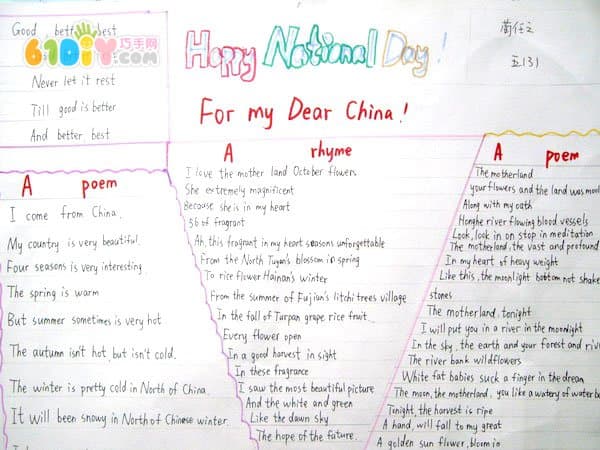 Good, better best
61DIY巧手网
.com
Never let it rest
Till good is better
And better best
Happy National Day!
For my Dear China!
五(3)
A poem
I come from China.
My country is very beautiful.
Four seasons is very interesting
The spring is warm
But summer sometimes is very hot
The autumn isn't hot, but isn't cold.
The winter is pretty cold in North of China.
It will been snowy in North of Chinese winter.
A rhyme
I love the mother land October flowers
She extremely magnificent
Because she is in my heart
56 of fragrant
Ah, this fragrant in my heart seasons unforgettable
From the North Tuyan's blossom in spring
To rice flower Hainan's winter
From the summer of Fujian's litchi trees village
In the fall of Turpan grape rice fruit
Every flower open
In a good harvest in sight
In these fragrance
I saw the most beautiful picture
And the white and green
Like the dawn sky
The hope of the future.
A poem
The motherland
your flowers and the land was mool
Along with my oath
Honghe river flowing blood vessels
Look, look in on stop in meditation
The motherland, the vast and profound
In my heart of heavy weight
Like this, the moonlight bottom not shake
stones
The motherland, tonight
I will put you in a river in the moonlight
In the sky, the earth and your forest and rive
The river bank wildflowers
White fat babies suck a finger in the dream
The moon, the motherland, you like a watery of water be
Tonight, the harvest is ripe
A hand, will fall to my great
A golden sun flower, bloom in